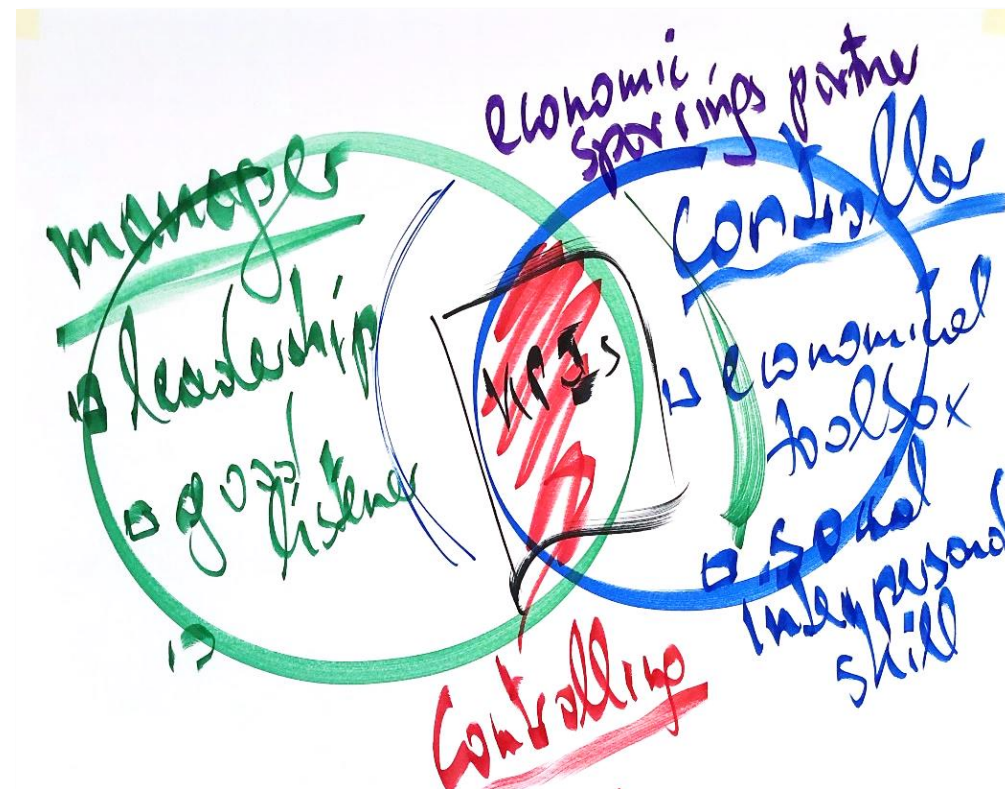 economic
sparrings partner
manager
leadership
good
listener
KPIs
Controller
economical
toolbox
social
interpersonal
skill
Controlling